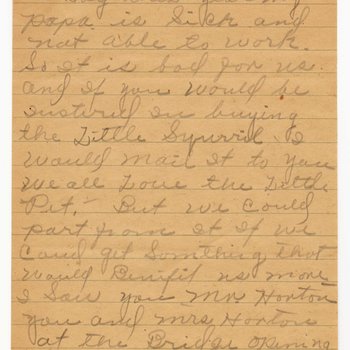 papa is Sick and
not able to work.
So it is bad for us.
and if you would be
Insterd In buying
the Little Squrril. I
would mail It to you
we all Love the Little
Pet. But we Could
part from it If we
Could get Something that
would Benifit us more
I Saw you Mr Horton
you and Mrs Horton
at the Bridge opening